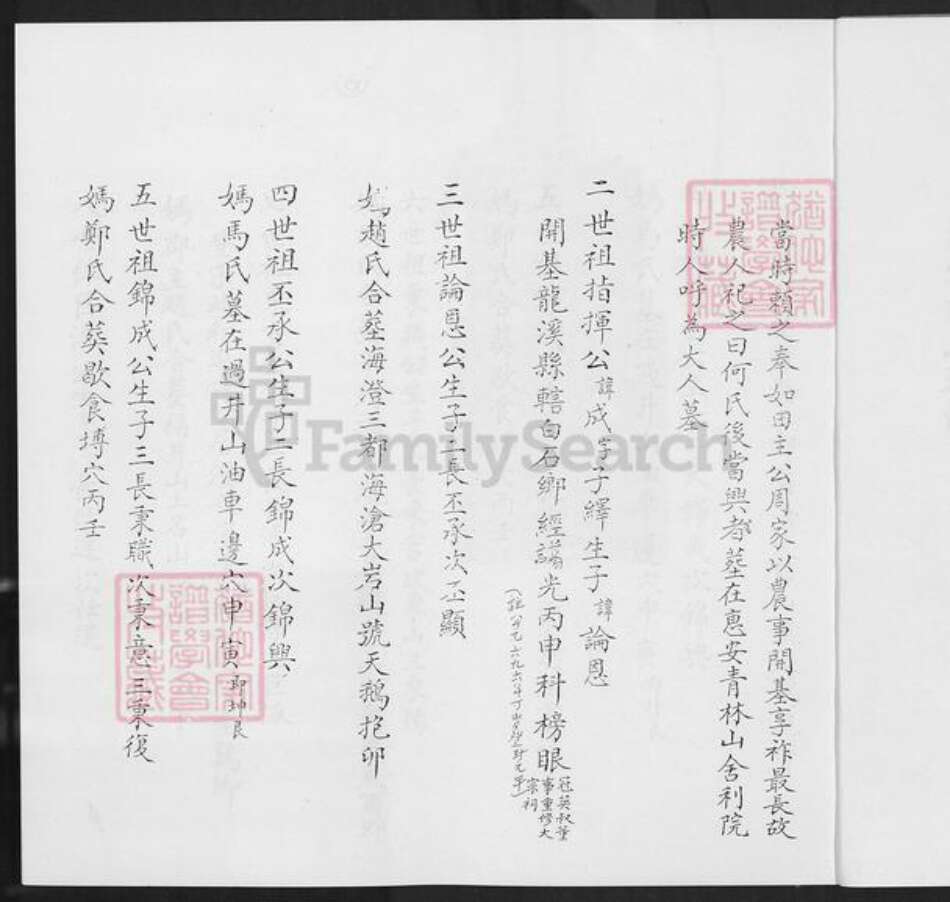 當時賴之奉如田主公周家以農事開基享祚最長故
農人祀之曰何氏後當興者墓在惠安青林山舍利院
時人呼為大人墓
二世祖指揮公諱成字子繹生子諱論恩
開基龍溪縣轄白石鄉經謁光丙申科榜眼
冠英叔董
事重修大
宗祠
三世祖論恩公生子二長丕承次丕顯
媽趙氏合塟海澄三都海滄大岩山號天鵝抱卵
四世祖丕承公生子二長錦成次錦興
媽馬氏墓在過井山油車邊穴申寅即坤艮
五世祖錦成公生子三長秉職次秉意三秉復
媽鄭氏合葵歇食塼穴丙壬
FamilySearch